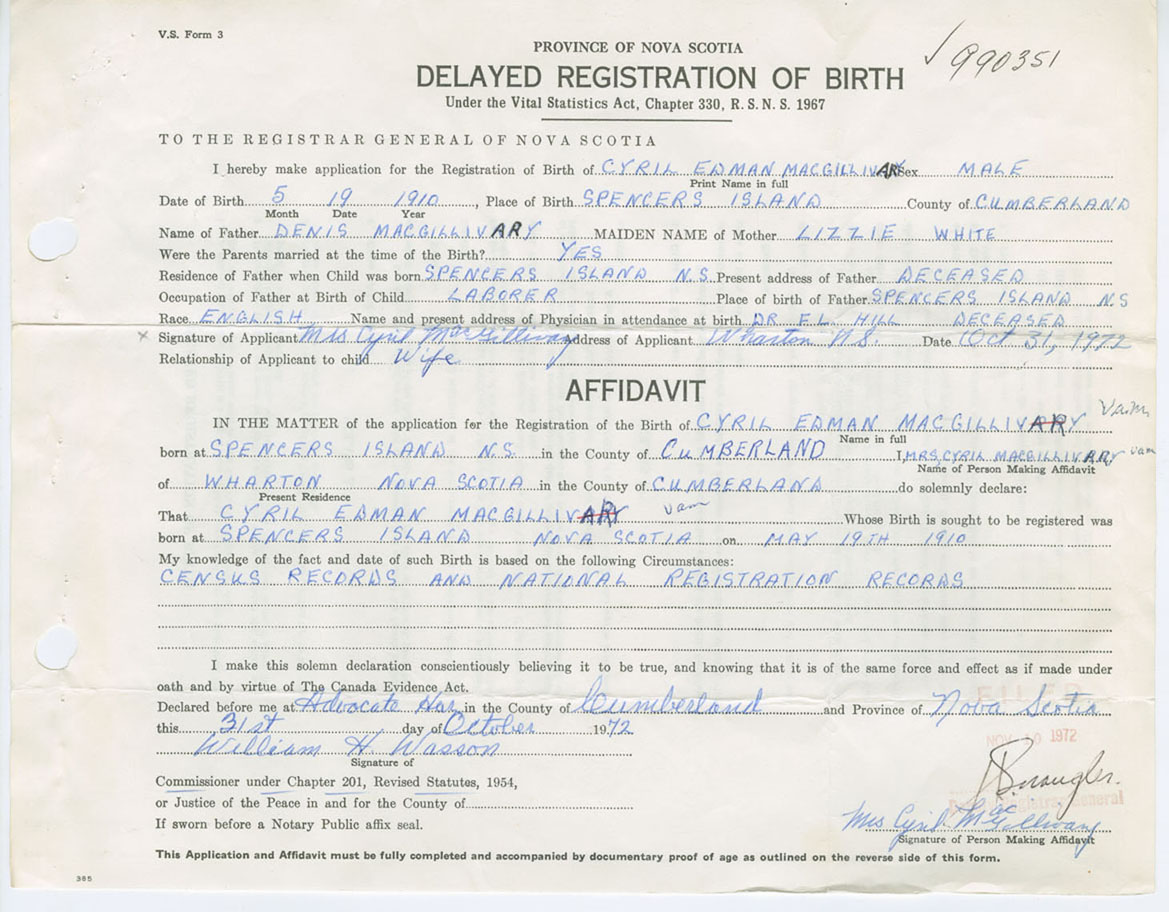 V.S. Form 3
PROVINCE OF NOVA SCOTIA
990351
DELAYED REGISTRATION OF BIRTH
Under the Vital Statistics Act, Chapter 330, R. S. N. S. 1967
TO THE REGISTRAR GENERAL OF NOVA SCOTIA
I hereby make application for the Registration of Birth of CYRIL EDMAN MACGILLIVARY Sex MALE
Print Name in full
Date of Birth 5 19 1910, Place of Birth SPENCERS ISLAND County of CUMBERLAND
Month Date Year
Name of Father DENIS MACGILLIVARY MAIDEN NAME of Mother LIZZIE WHITE
Were the Parents married at the time of the Birth? YES
Residence of Father when Child was born SPENCERS ISLAND N.S. Present address of Father DECEASED
Occupation of Father at Birth of Child LABORER Place of birth of Father SPENCERS ISLAND N S
Race ENGLISH Name and present address of Physician in attendance at birth DR F.L. HILL DECEASED
x Signature of Applicant Mrs Cyril MacGillivary Address of Applicant Wharton N.S. Date Oct 31, 1972
Relationship of Applicant to child Wife
AFFIDAVIT
IN THE MATTER of the application for the Registration of the Birth of CYRIL EDMAN MACGILLIVARY Vam
Name in full
born at SPENCERS ISLAND N.S. in the County of CUMBERLAND I, MRS. CYRIL MACGILLIVARY vam
Name of Person Making Affidavit
of WHARTON NOVA SCOTIA in the County of CUMBERLAND do solemnly declare:
Present Residence
That CYRIL EDMAN MACGILLIVARY vam Whose Birth is sought to be registered was
born at SPENCERS ISLAND NOVA SCOTIA on MAY 19TH 1910
My knowledge of the fact and date of such Birth is based on the following Circumstances:
CENSUS RECORDS AND NATIONAL REGISTRATION RECORDS
I make this solemn declaration conscientiously believing it to be true, and knowing that it is of the same force and effect as if made under
oath and by virtue of The Canada Evidence Act.
FILED
Declared before me at Advocate Har in the County of Cumberland and Province of Nova Scotia
this 31st day of October 1972
NOV 10 1972
William H. Wasson
Signature of
Commissioner under Chapter 201, Revised Statutes, 1954,
or Justice of the Peace in and for the County of
Registrar General
If sworn before a Notary Public affix seal.
Mrs Cyril MacGillivary
Signature of Person Making Affidavit
This Application and Affidavit must be fully completed and accompanied by documentary proof of age as outlined on the reverse side of this form.
385